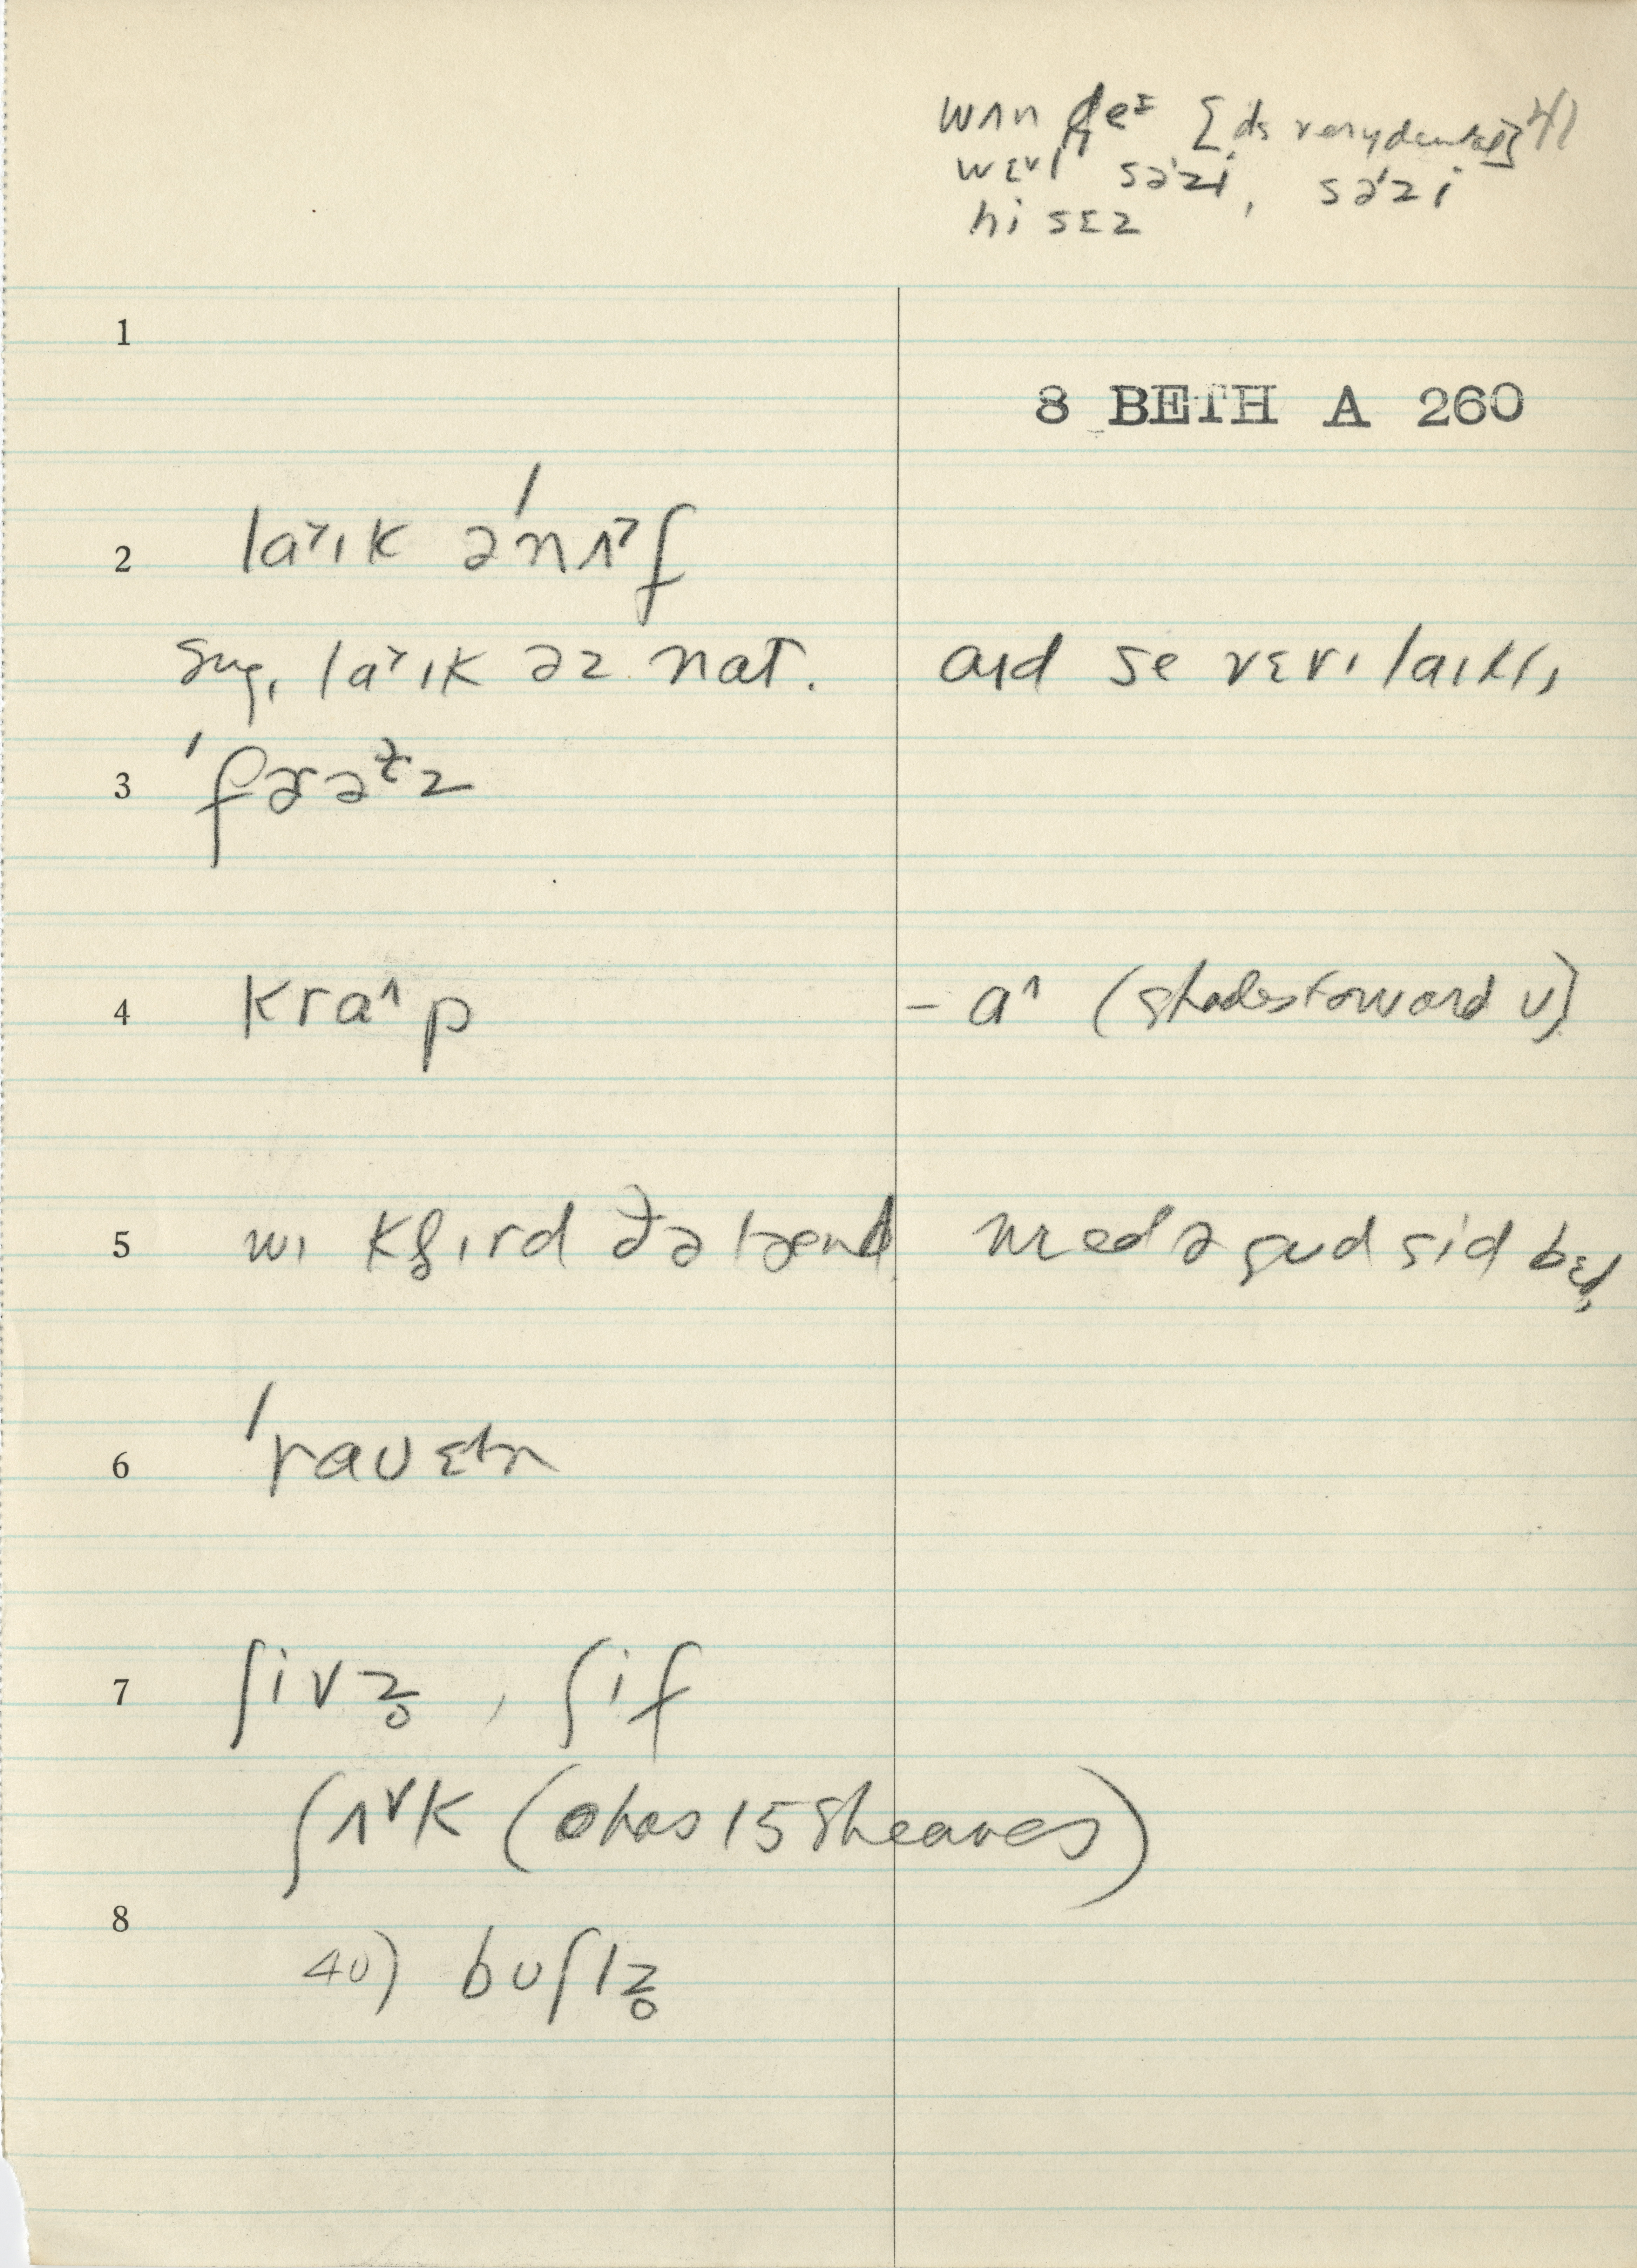 wʌn deᶦ [ds very dental] 4)
wɛvl səˈzi, səˈzi
hi sɛz
1
8 BETH A 260
2 la˃ɪk əˈnʌ˃f
sug. la˃ɪk əz nat. aɪd se vɛrɪ laɪklɪ
3 ˈfɚəᵗz
4 kra^p - a^ (shades toward ʊ)
5 wɪ ðə gud sid bɛd
6 ˈraʊɛn
7 ʃivz̥, ʃif
ʃʌ˅k (has 15 sheaves)
8
40) buʃlz̥